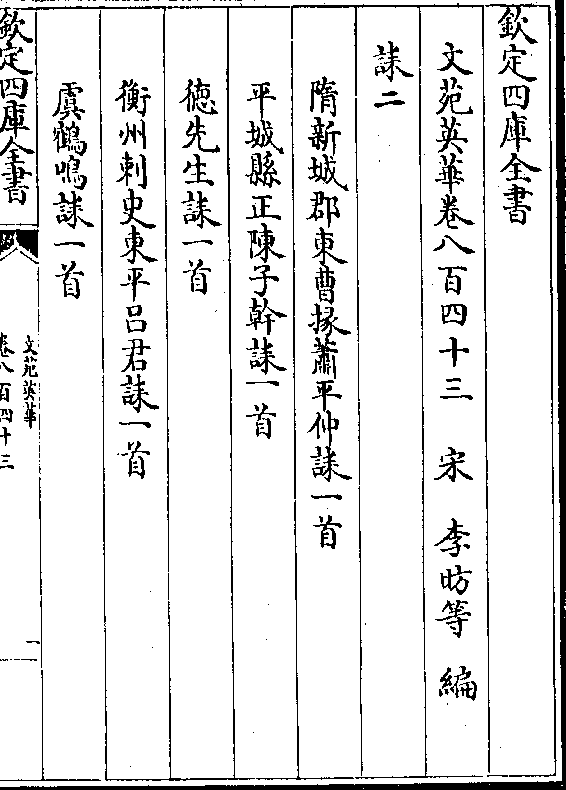 欽定四庫全書
文苑英華卷八百四十三　宋　李昉等　編
誄二
隋新城郡東曹掾蕭平仲誄一首
平城縣正陳子幹誄一首
徳先生誄一首
衡州刺史東平呂君誄一首
虞鶴鳴誄一首
欽定四庫全書
文苑英華
卷八百四十三
一